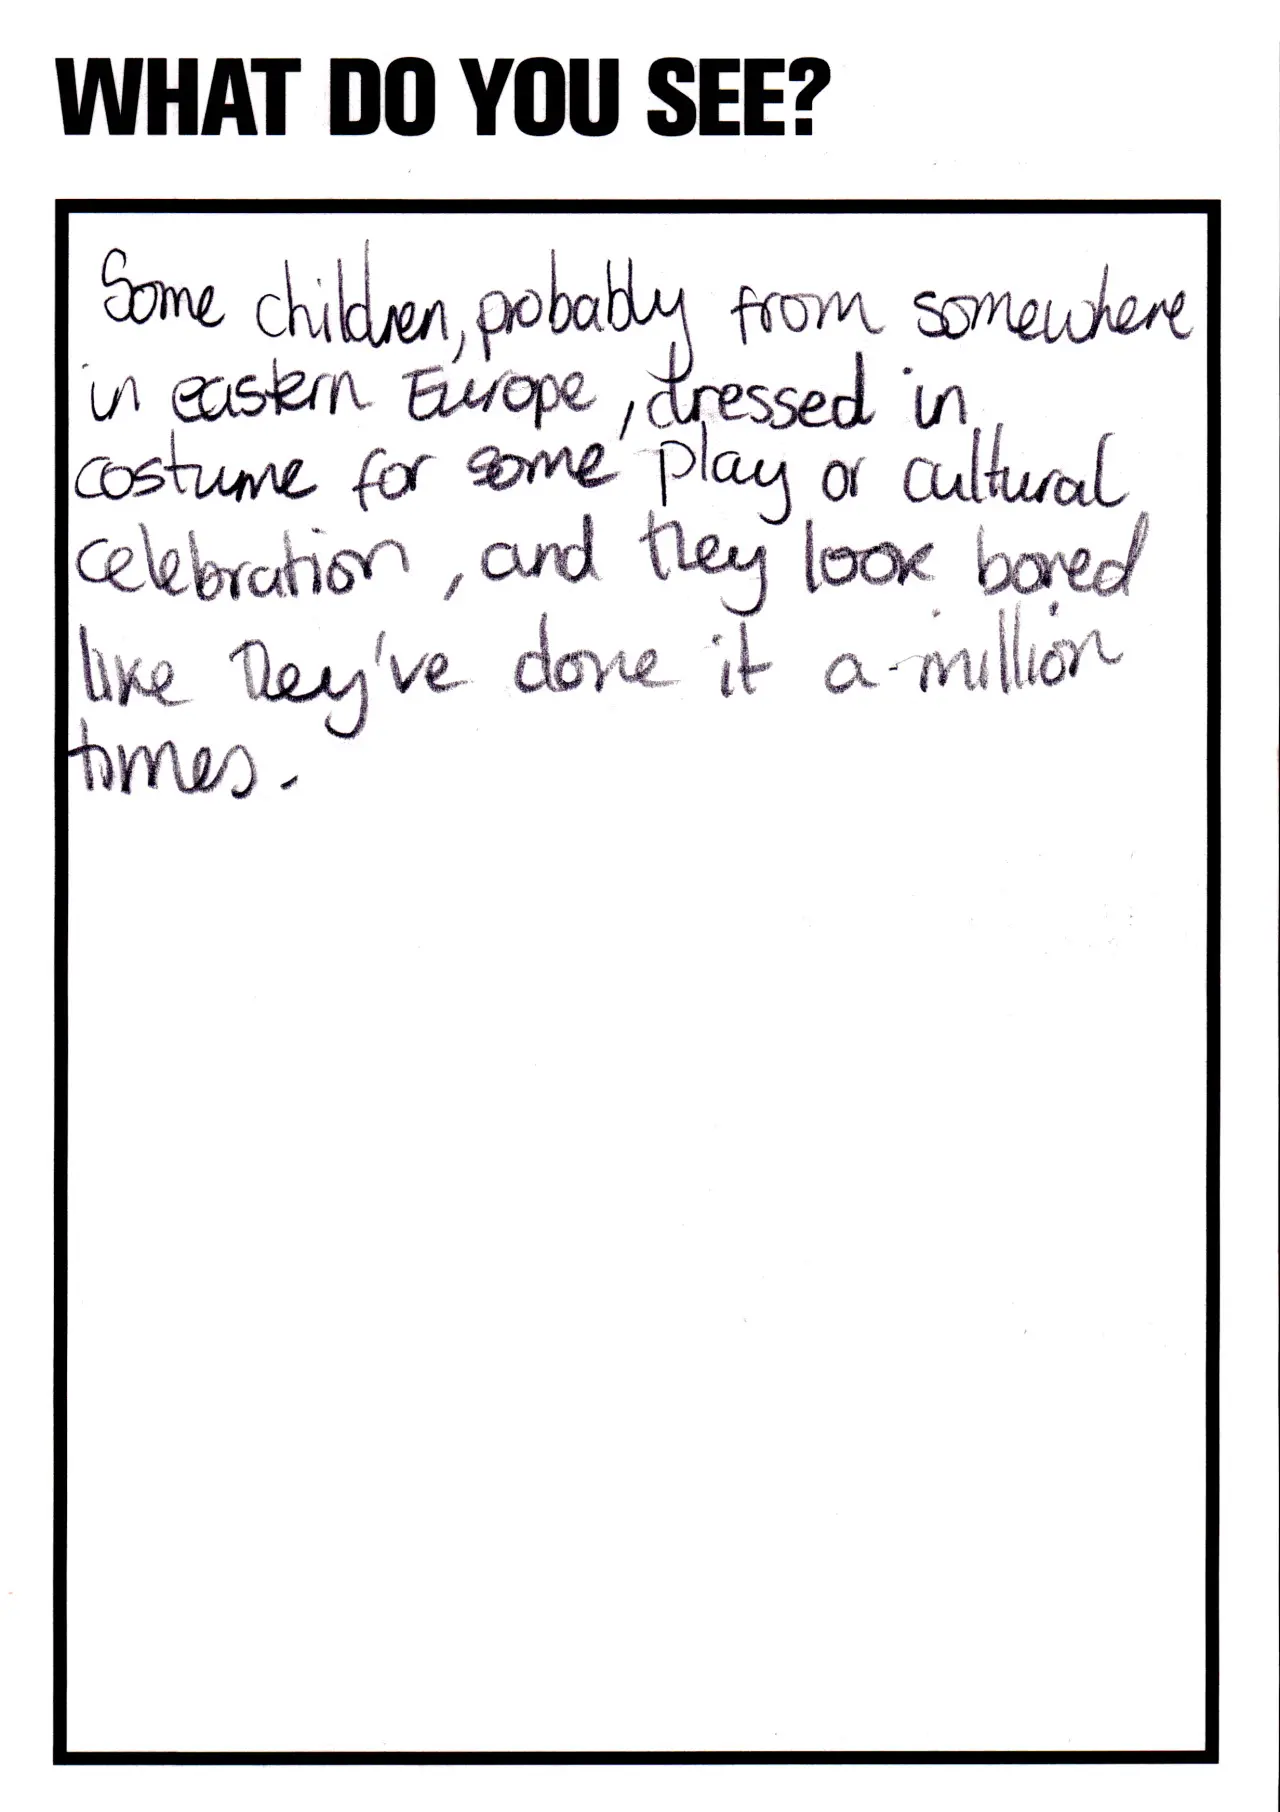 WHAT DO YOU SEE?
Some children, probably from somewhere
in eastern Europe, dressed in
costume for some play or cultural
celebration, and they look bored
like they've done it a million
times.